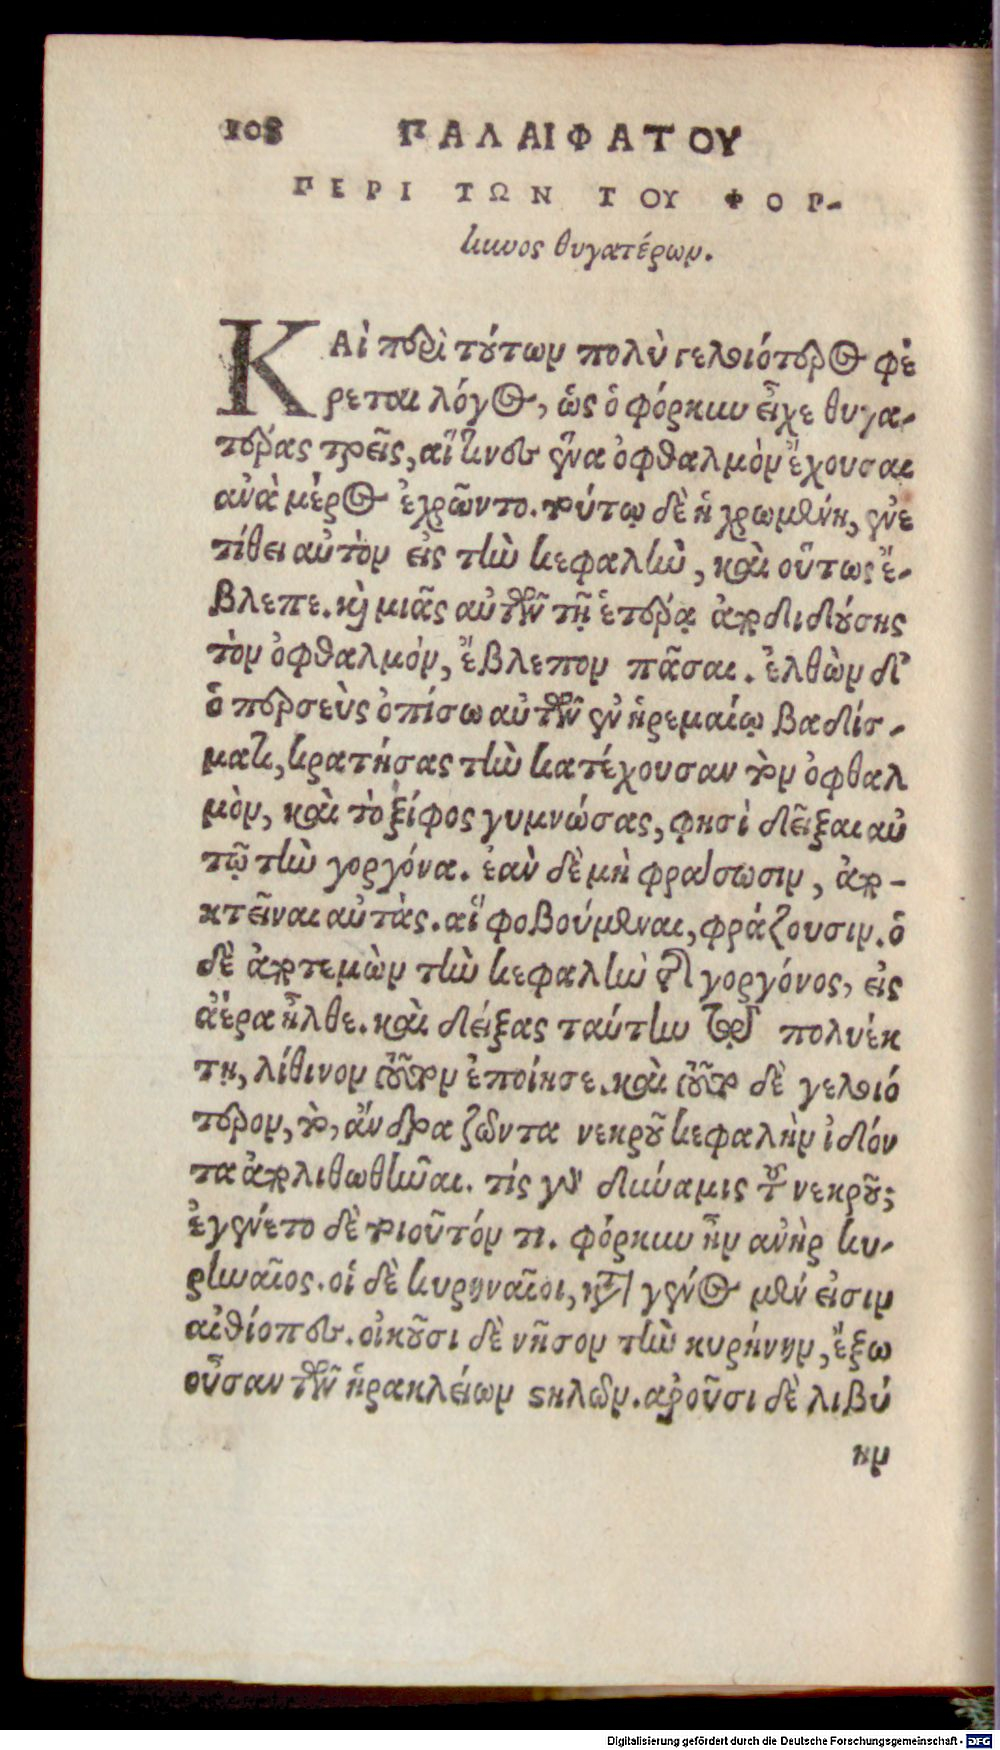 108 ΠΑΛΑΙΦΑΤΟΥ
ΠΕΡΙ ΤΩΝ ΤΟΥ ΦΟΡ-
κυνος θυγατέρων.
ΚΑὶ περὶ τούτων πολὺ γελοιότερος φέ
ρεται λόγος, ὡς ὁ φόρκυν εἶχε θυγα-
τέρας τρεῖς, αἵ τινες ἕνα ὀφθαλμὸν ἔχουσαι
ἀνὰ μέρος ἐχρῶντο. τούτῳ δὲ ἡ χρωμένη, ἐνε
τίθει αὐτὸν εἰς τὴν κεφαλὴν, καὶ οὕτως ἔ-
βλεπε. καὶ μιᾶς αὐτῶν τῇ ἑτέρᾳ ἀποδιδούσης
τὸν ὀφθαλμόν, ἔβλεπον πᾶσαι. ἐλθὼν δ᾽
ὁ περσεὺς ὀπίσω αὐτῶν ἐν ἠρεμαίῳ βαδίσ-
ματι, κρατήσας τὴν κατέχουσαν τὸν ὀφθαλ
μὸν, καὶ τὸ ξίφος γυμνώσας, φησὶ δεῖξαι αὐ
τῷ τὴν γοργόνα. ἐὰν δὲ μὴ φράσωσιν, ἀπο-
κτεῖναι αὐτὰς. αἵ φοβούμεναι, φράζουσιν. ὁ
δὲ ἀποτεμὼν τὴν κεφαλὴν τῆς γοργόνος, εἰς
ἀέρα ἦλθε. καὶ δείξας ταύτην τῷ πολυέκ
τῃ, λίθινον αὐτὸν ἐποίησε. καὶ τοῦτο δὲ γελοιό
τερον, τὸ, ἄνδρα ζῶντα νεκροῦ κεφαλὴν ἰδόν
τα ἀπολιθωθῆναι. τίς γὰρ δύναμις τοῦ νεκροῦ;
ἐγένετο δὲ τοιοῦτόν τι. φόρκυν ἦν ἀνὴρ κυ-
ρηναῖος. οἱ δὲ κυρηναῖοι, κατὰ γένος μέν εἰσιν
αἰθίοπες. οἰκοῦσι δὲ νῆσον τὴν κυρήνην, ἔξω
οὖσαν τῶν ἡρακλείων στηλῶν. ἀροῦσι δὲ λιβύ
ην
Digitalisierung gefördert durch die Deutsche Forschungsgemeinschaft - DFG